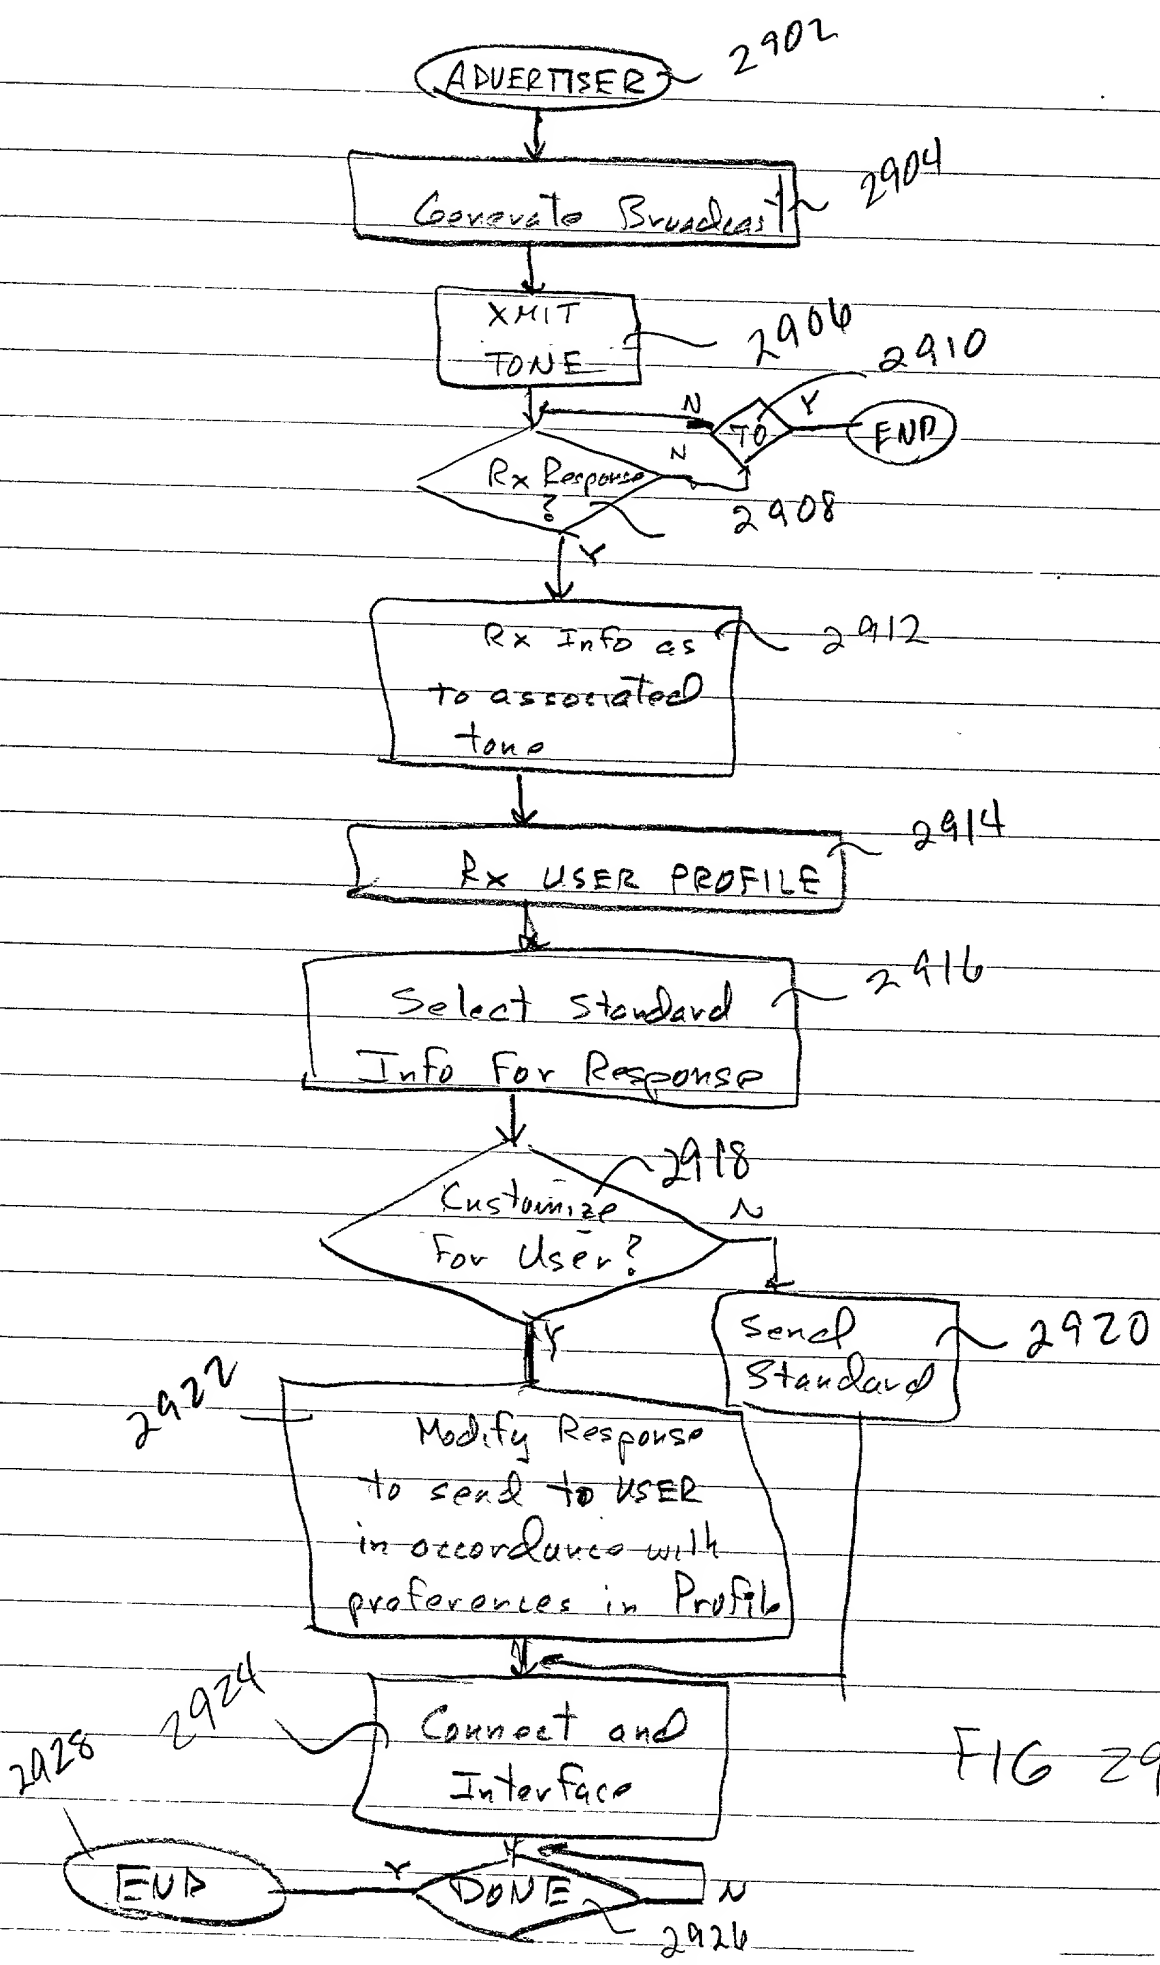 ADVERTISER 2902
Generate Broadcast 2904
XMIT
TONE 2906
2910
N TO Y END
Rx Response
? N
2908
Y
Rx Info as
to associated
tone
2912
Rx USER PROFILE 2914
Select Standard
Info For Response
2916
Customize
For User?
2918
N
Y
Send
Standard
2920
2922
Modify Response
to send to USER
in accordance with
preferences in Profile
2924
Connect and
Interface
FIG 29
2928
END Y DONE N
2926